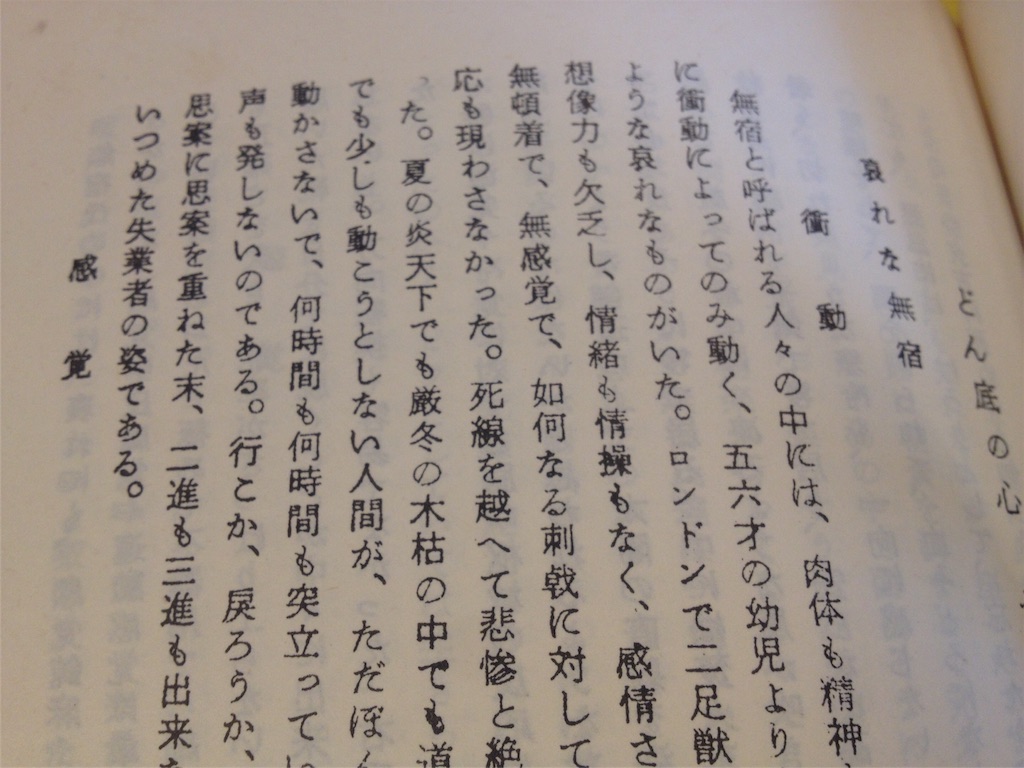 どん底の心
哀れな無宿
衝動
無宿と呼ばれる人々の中には、肉体も精神
に衝動によってのみ動く、五六才の幼児より
ような哀れなものがいた。ロンドンで二足獣
想像力も欠乏し、情緒も情操もなく、感情さ
無頓着で、無感覚で、如何なる刺戟に対して
応も現わさなかった。死線を越へて悲惨と絶
た。夏の炎天下でも厳冬の木枯の中でも道
でも少しも動こうとしない人間が、ただぼん
動かさないで、何時間も何時間も突立ってい
声も発しないのである。行こか、戻ろうか、
思案に思案を重ねた末、二進も三進も出来な
いつめた失業者の姿である。
感覚